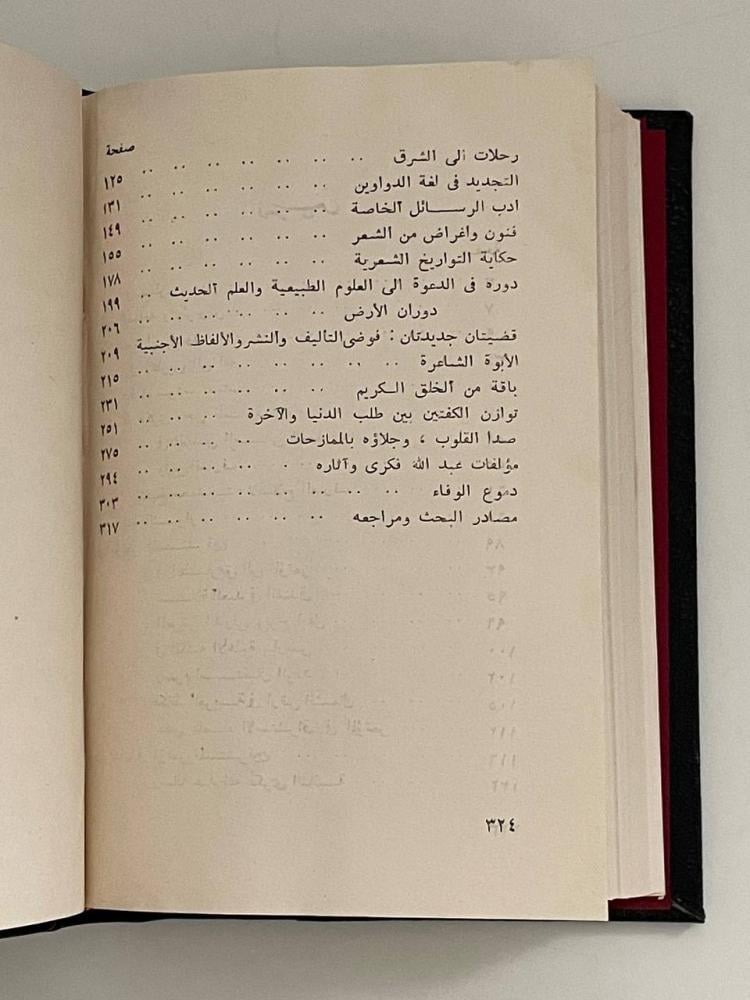 صفحة
رحلات الى الشرق .. .. .. .. .. .. .. ١٢٥
التجديد فى لغة الدواوين .. .. .. .. .. .. ١٣١
ادب الرســـائل الخاصة .. .. .. .. .. .. ١٤٩
فنون واغراض من الشعر .. .. .. .. .. .. ١٥٥
حكاية التواريخ الشعرية .. .. .. .. .. .. ١٧٨
دوره فى الدعوة الى العلوم الطبيعية والعلم الحديث .. ١٩٩
دوران الأرض .. .. .. .. .. .. ٢٠٦
قضيتان جديدتان : فوضى التأليف والنشر والألفاظ الأجنبية ٢٠٩
الأبوة الشاعرة .. .. .. .. .. .. .. .. ٢١٥
باقة من الخلق الكريم .. .. .. .. .. .. ٢٣١
توازن الكفتين بين طلب الدنيا والآخرة .. .. .. ٢٥١
صدا القلوب ، وجلاؤه بالممازحات .. .. .. .. ٢٧٥
مؤلفات عبد الله فكرى وآثاره .. .. .. .. .. ٢٩٤
دموع الوفاء .. .. .. .. .. .. .. .. ٣٠٣
مصادر البحث ومراجعه .. .. .. .. .. .. ٣١٧
٣٢٤